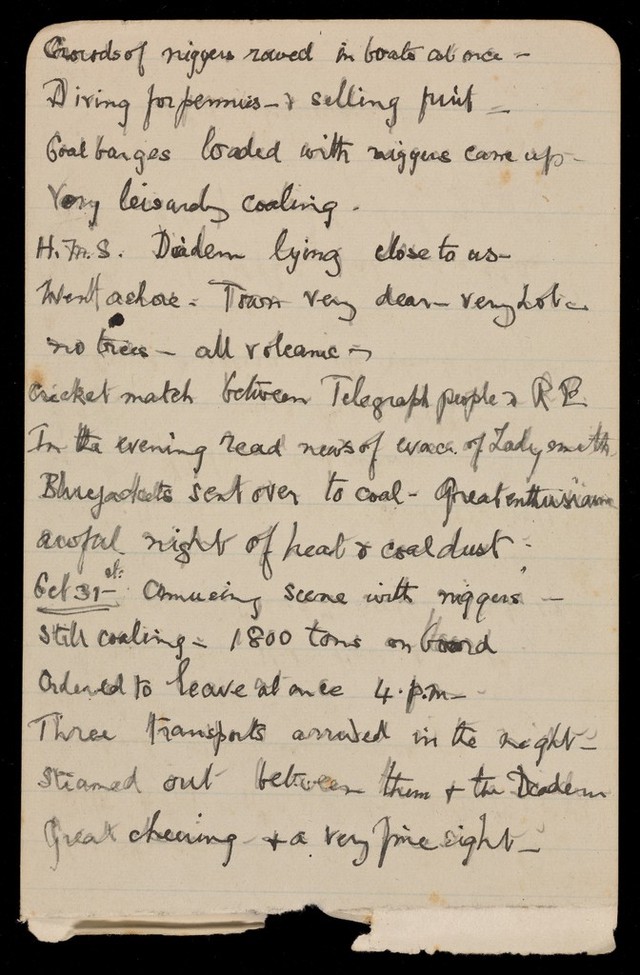 Crowds of niggers rowed in boats at once -
Diving for pennies - & selling fruit -
Coal barges loaded with niggers came up -
Very leisurely coaling.
H.M.S. Diadem lying close to us -
Went ashore - Town very dear - very hot -
no trees - all volcanic -
Cricket match between Telegraph people & R E
In the evening read news of evac. of Ladysmith
Bluejackets sent over to coal - Great enthusiasm
awful night of heat & coal dust -
Oct 31st Amusing scene with niggers -
Still coaling - 1800 tons on board
Ordered to leave at once 4.p.m -
Three transports arrived in the night -
Steamed out between them & the Diadem
Great cheering & a very fine sight -